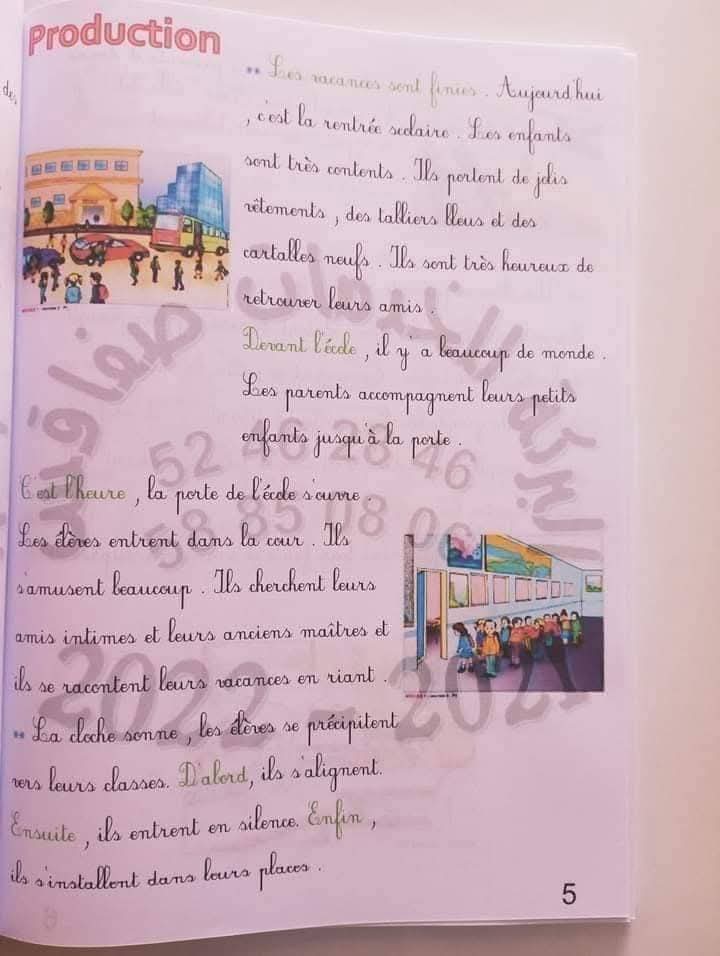 Production
des
** Les vacances sont finies . Aujourd'hui
, c'est la rentrée scolaire . Les enfants
sont très contents . Ils portent de jolis
vêtements , des talliers bleus et des
cartalles neufs . Ils sont très heureux de
retrouver leurs amis .
Devant l'école , il y' a beaucoup de monde .
Les parents accompagnent leurs petits
enfants jusqu'à la porte .
C'est l'heure , la porte de l'école s'ouvre .
Les élèves entrent dans la cour . Ils
s'amusent beaucoup . Ils cherchent leurs
amis intimes et leurs anciens maîtres et
ils se racontent leurs vacances en riant .
** La cloche sonne , les élèves se précipitent
vers leurs classes. D'abord, ils s'alignent.
Ensuite , ils entrent en silence. Enfin ,
ils s'installent dans leurs places .
5
البركة للخدمات صفاقس
52 46 28 46
58 85 08 06
2022 - 2021